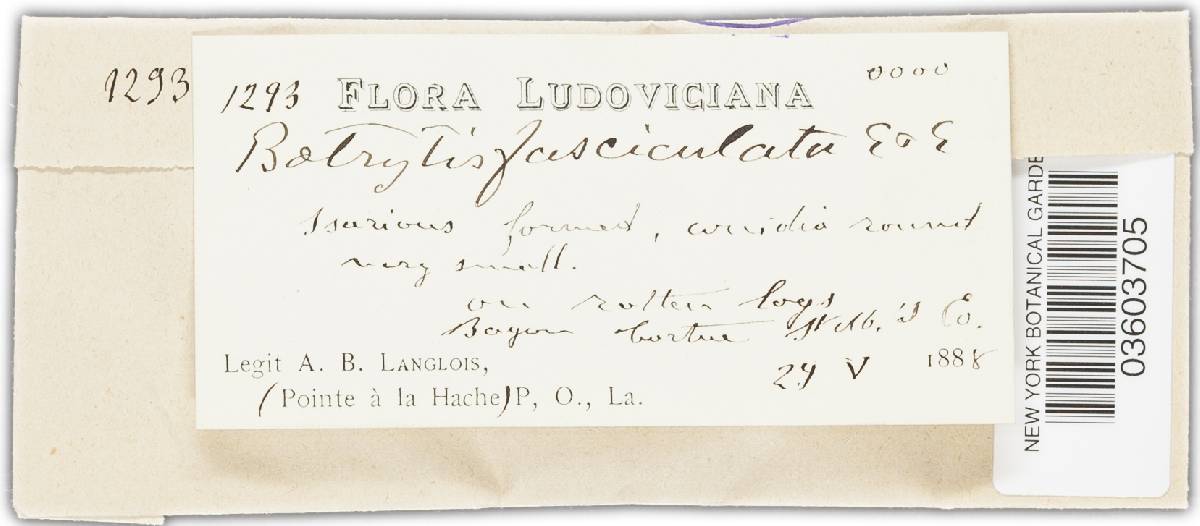 1293
1293 FLORA LUDOVICIANA oooo
Botrytis fasciculata E & E
Isarious formed, conidia round
very small.
on rotten logs
Bayou tortue St M. Co.
Legit A. B. LANGLOIS, 29 V 1888
(Pointe à la Hache) P, O., La.
NEW YORK BOTANICAL GARDE
03603705